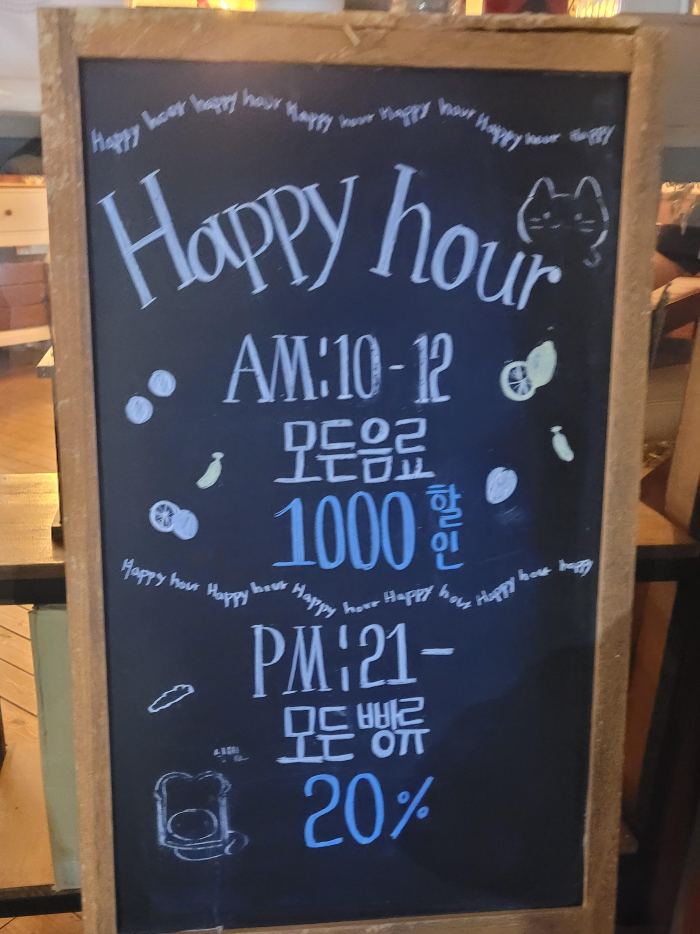 Happy hour happy hour Happy hour Happy hour Happy hour Happy
Happy hour
AM:10-12
모든음료
1000 할인
Happy hour Happy hour Happy hour Happy hour Happy hour happy
PM:21-
모든 빵류
20%